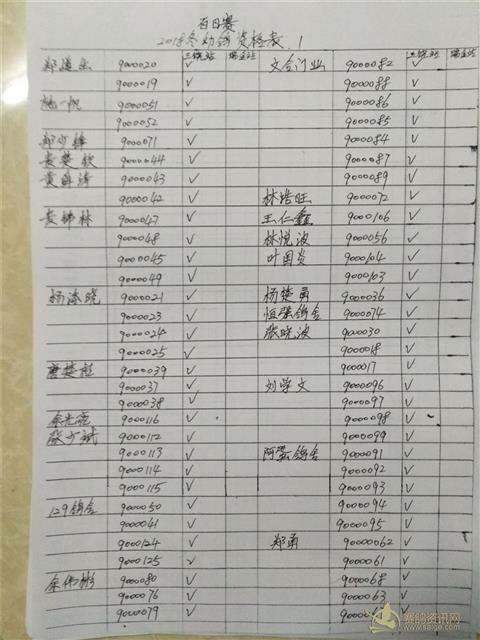 百日赛
2018冬幼鸽资格表.1
三饶站 瑞金站 三饶站 瑞金站
9000020 ✓ 文合门业 9000082 ✓
9000019 ✓ 9000088 ✓
施一帆 9000051 ✓ 9000086 ✓
9000052 ✓ 9000085 ✓
郑少锋 9000071 ✓ 9000084 ✓
黄楚钦 9000044 ✓ 9000087 ✓
9000043 ✓ 9000089 ✓
9000042 ✓ 林浩旺 9000072 ✓
黄锦林 9000047 ✓ 王仁鑫 9000106 ✓
9000048 ✓ 林悦波 9000056 ✓
9000045 ✓ 叶国炎 9000104 ✓
9000049 ✓ 9000103 ✓
杨海晓 9000021 ✓ 杨楚勇 9000036 ✓
9000023 ✓ 恒强鸽舍 9000074 ✓
9000024 ✓ 张晓波 9000030 ✓
9000025 ✓ 9000018 ✓
9000039 ✓ 9000017 ✓
9000037 ✓ 刘学文 9000096 ✓
9000038 ✓ 9000097 ✓
9000116 ✓ 9000098 ✓
张少斌 9000112 ✓ 9000099 ✓
9000113 ✓ 鸽舍 9000091 ✓
9000114 ✓ 9000092 ✓
9000115 ✓ 9000093 ✓
129鸽舍 9000050 ✓ 9000094 ✓
9000041 ✓ 9000095 ✓
9000124 ✓ 郑勇 90000062 ✓
9000125 ✓ 9000061 ✓
余伟彬 9000080 ✓ 9000068 ✓
9000076 ✓ 9000063 ✓
9000079 ✓
赛鸽资讯网
www.saige.com